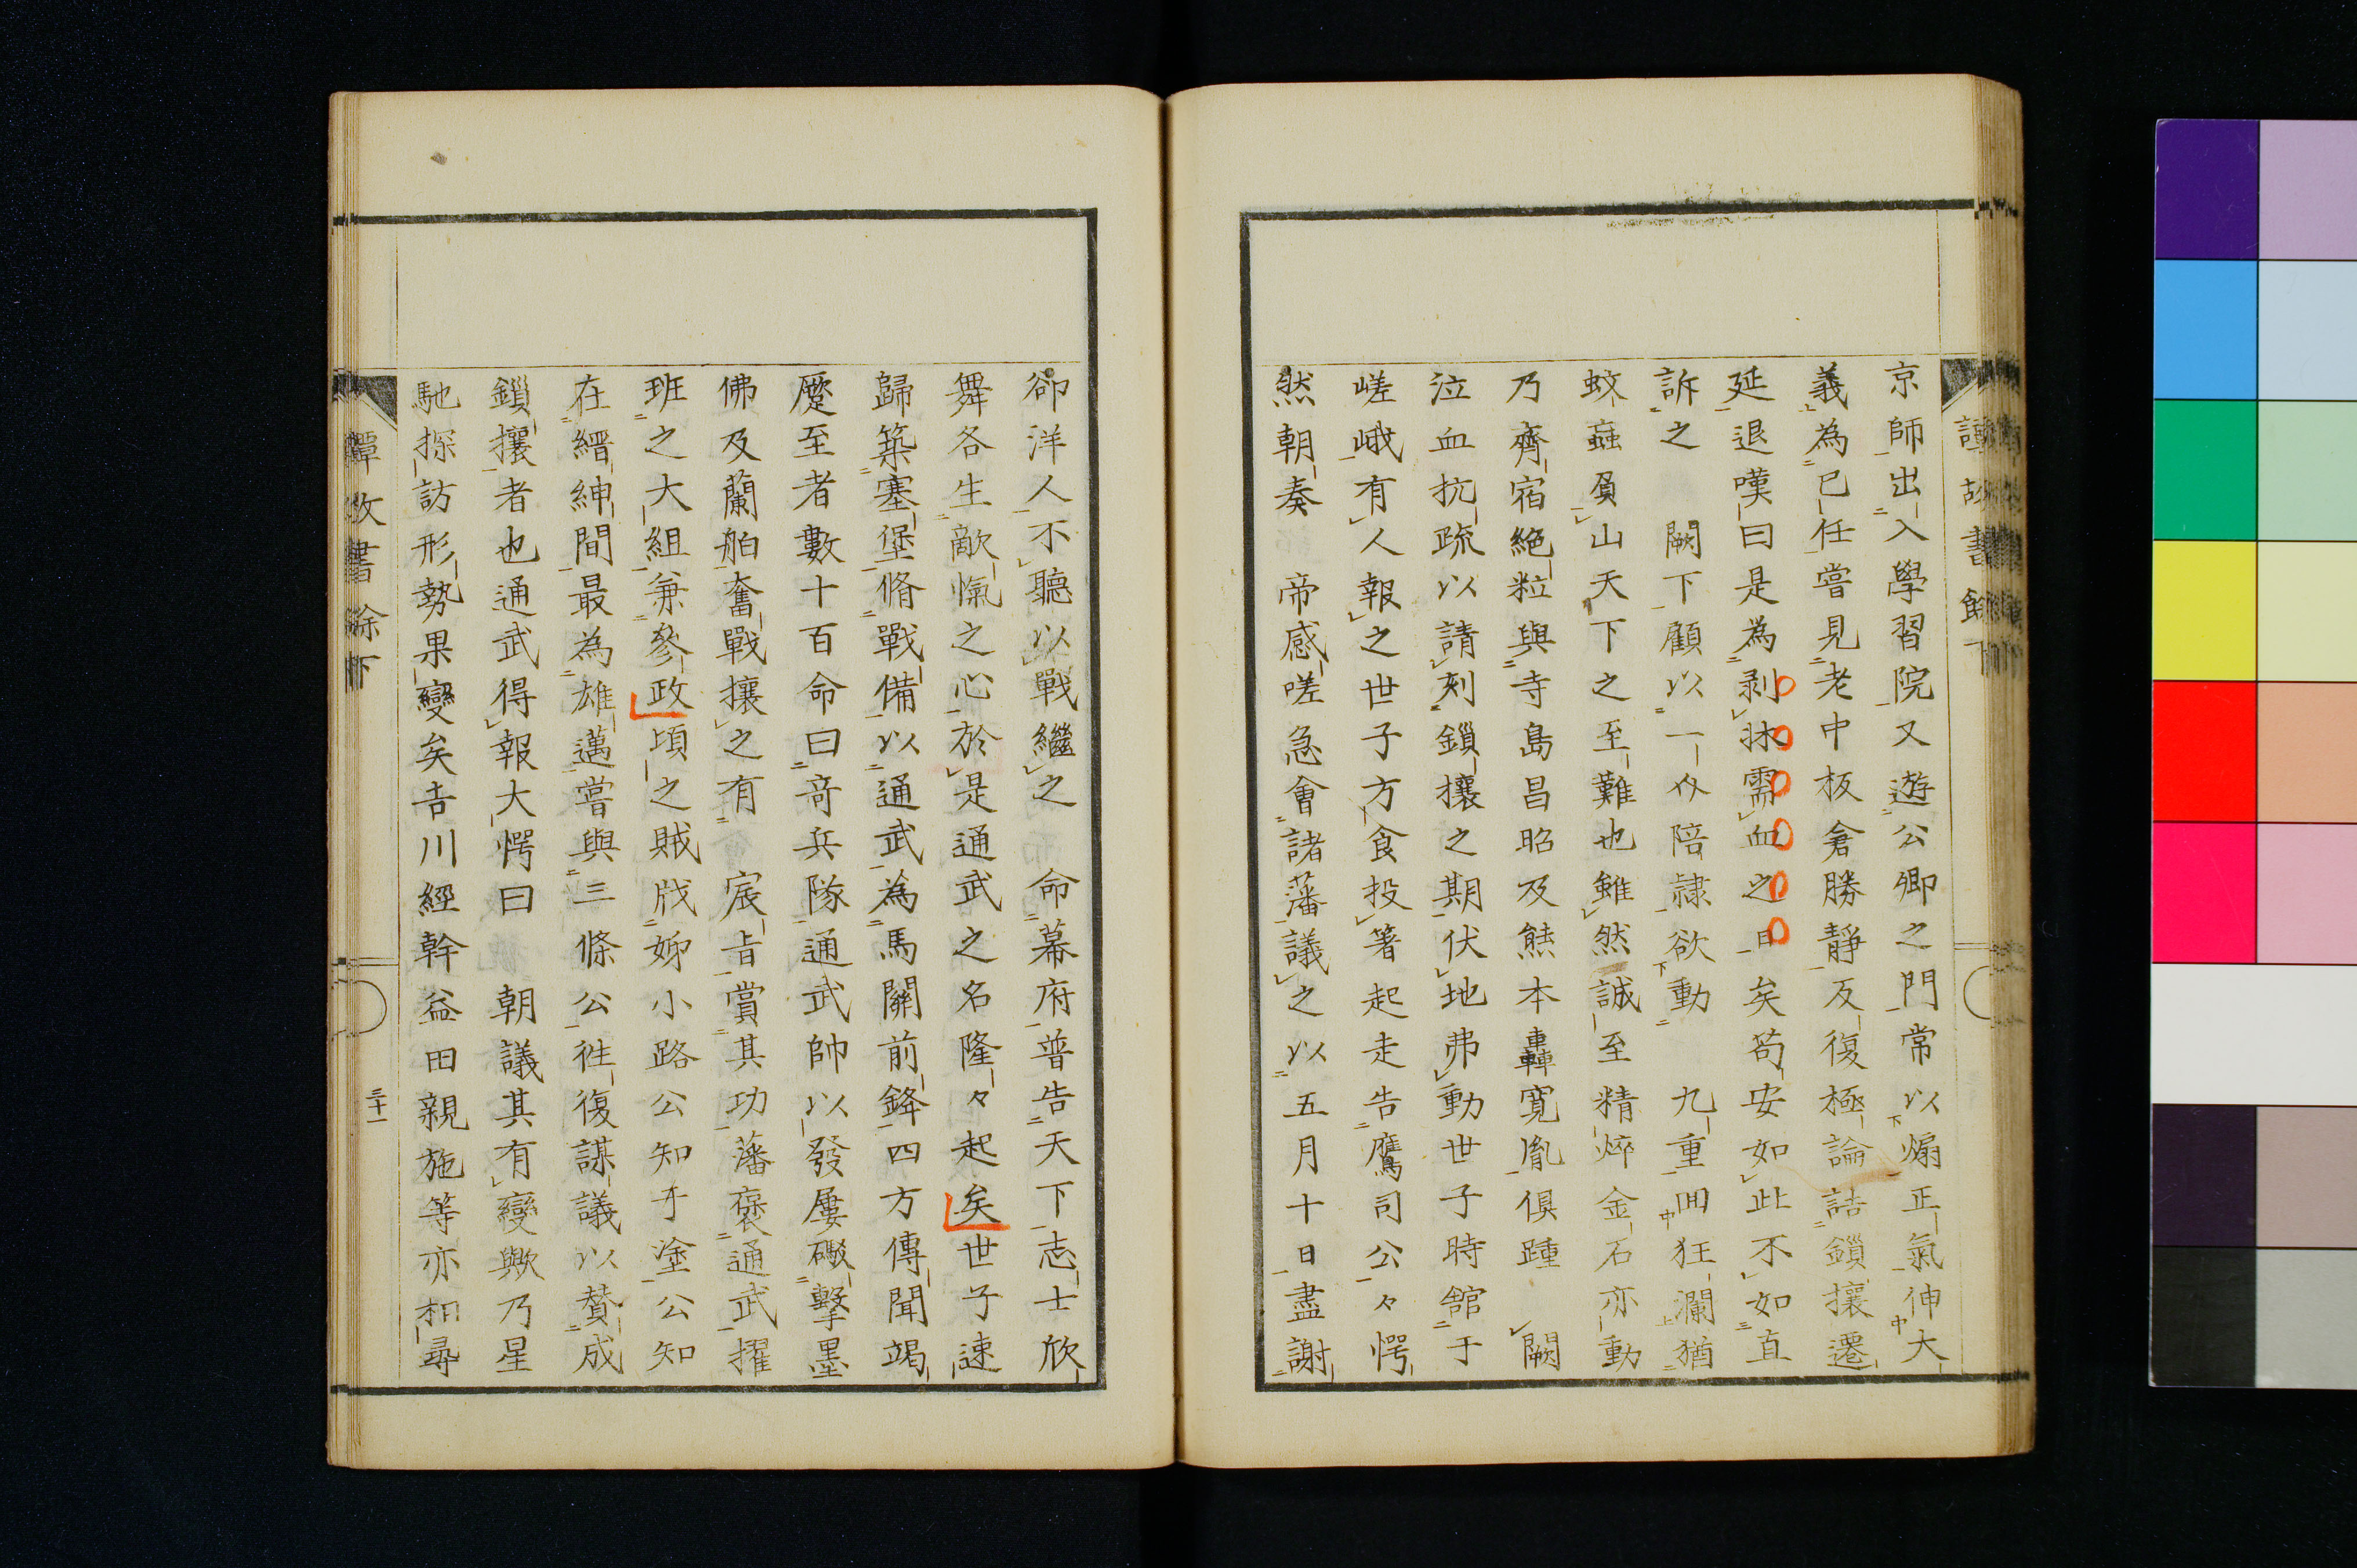 京師出入學習院又遊公卿之門常以煽正氣伸大
義為已任嘗見老中板倉勝靜反復極論詰鎖攘遷
延退嘆曰是為剥牀需血之日矣苟安如此不如直
訴之　闕下顧以一介陪隷欲動　九重回狂瀾猶
蚊蝱負山天下之至難也雖然誠至精焠金石亦動
乃齊宿絶粒與寺島昌昭及熊本轟寛胤俱踵　闕
泣血抗疏以請刻鎖攘之期伏地弗動世子時舘于
嵯峨有人報之世子方食投箸起走告鷹司公々愕
然朝奏　帝感嗟急會諸藩議之以五月十日盡謝
卻洋人不聽以戰繼之　命幕府普告天下志士欣
舞各生敵愾之心於是通武之名隆々起矣世子速
歸築塞堡脩戰備以通武為馬關前鋒四方傳聞竭
蹷至者數十百命曰竒兵隊通武帥以發屢礮擊墨
佛及蘭舶奮戰攘之有　宸旨賞其功藩褒通武擢
班之大組兼參政頃之賊戕姊小路公知于塗公知
在縉紳間最為雄邁嘗與三條公徃復謀議以賛成
鎖攘者也通武得報大愕曰　朝議其有變歟乃星
馳探訪形勢果變矣吉川經幹益田親施等亦相尋
三十一